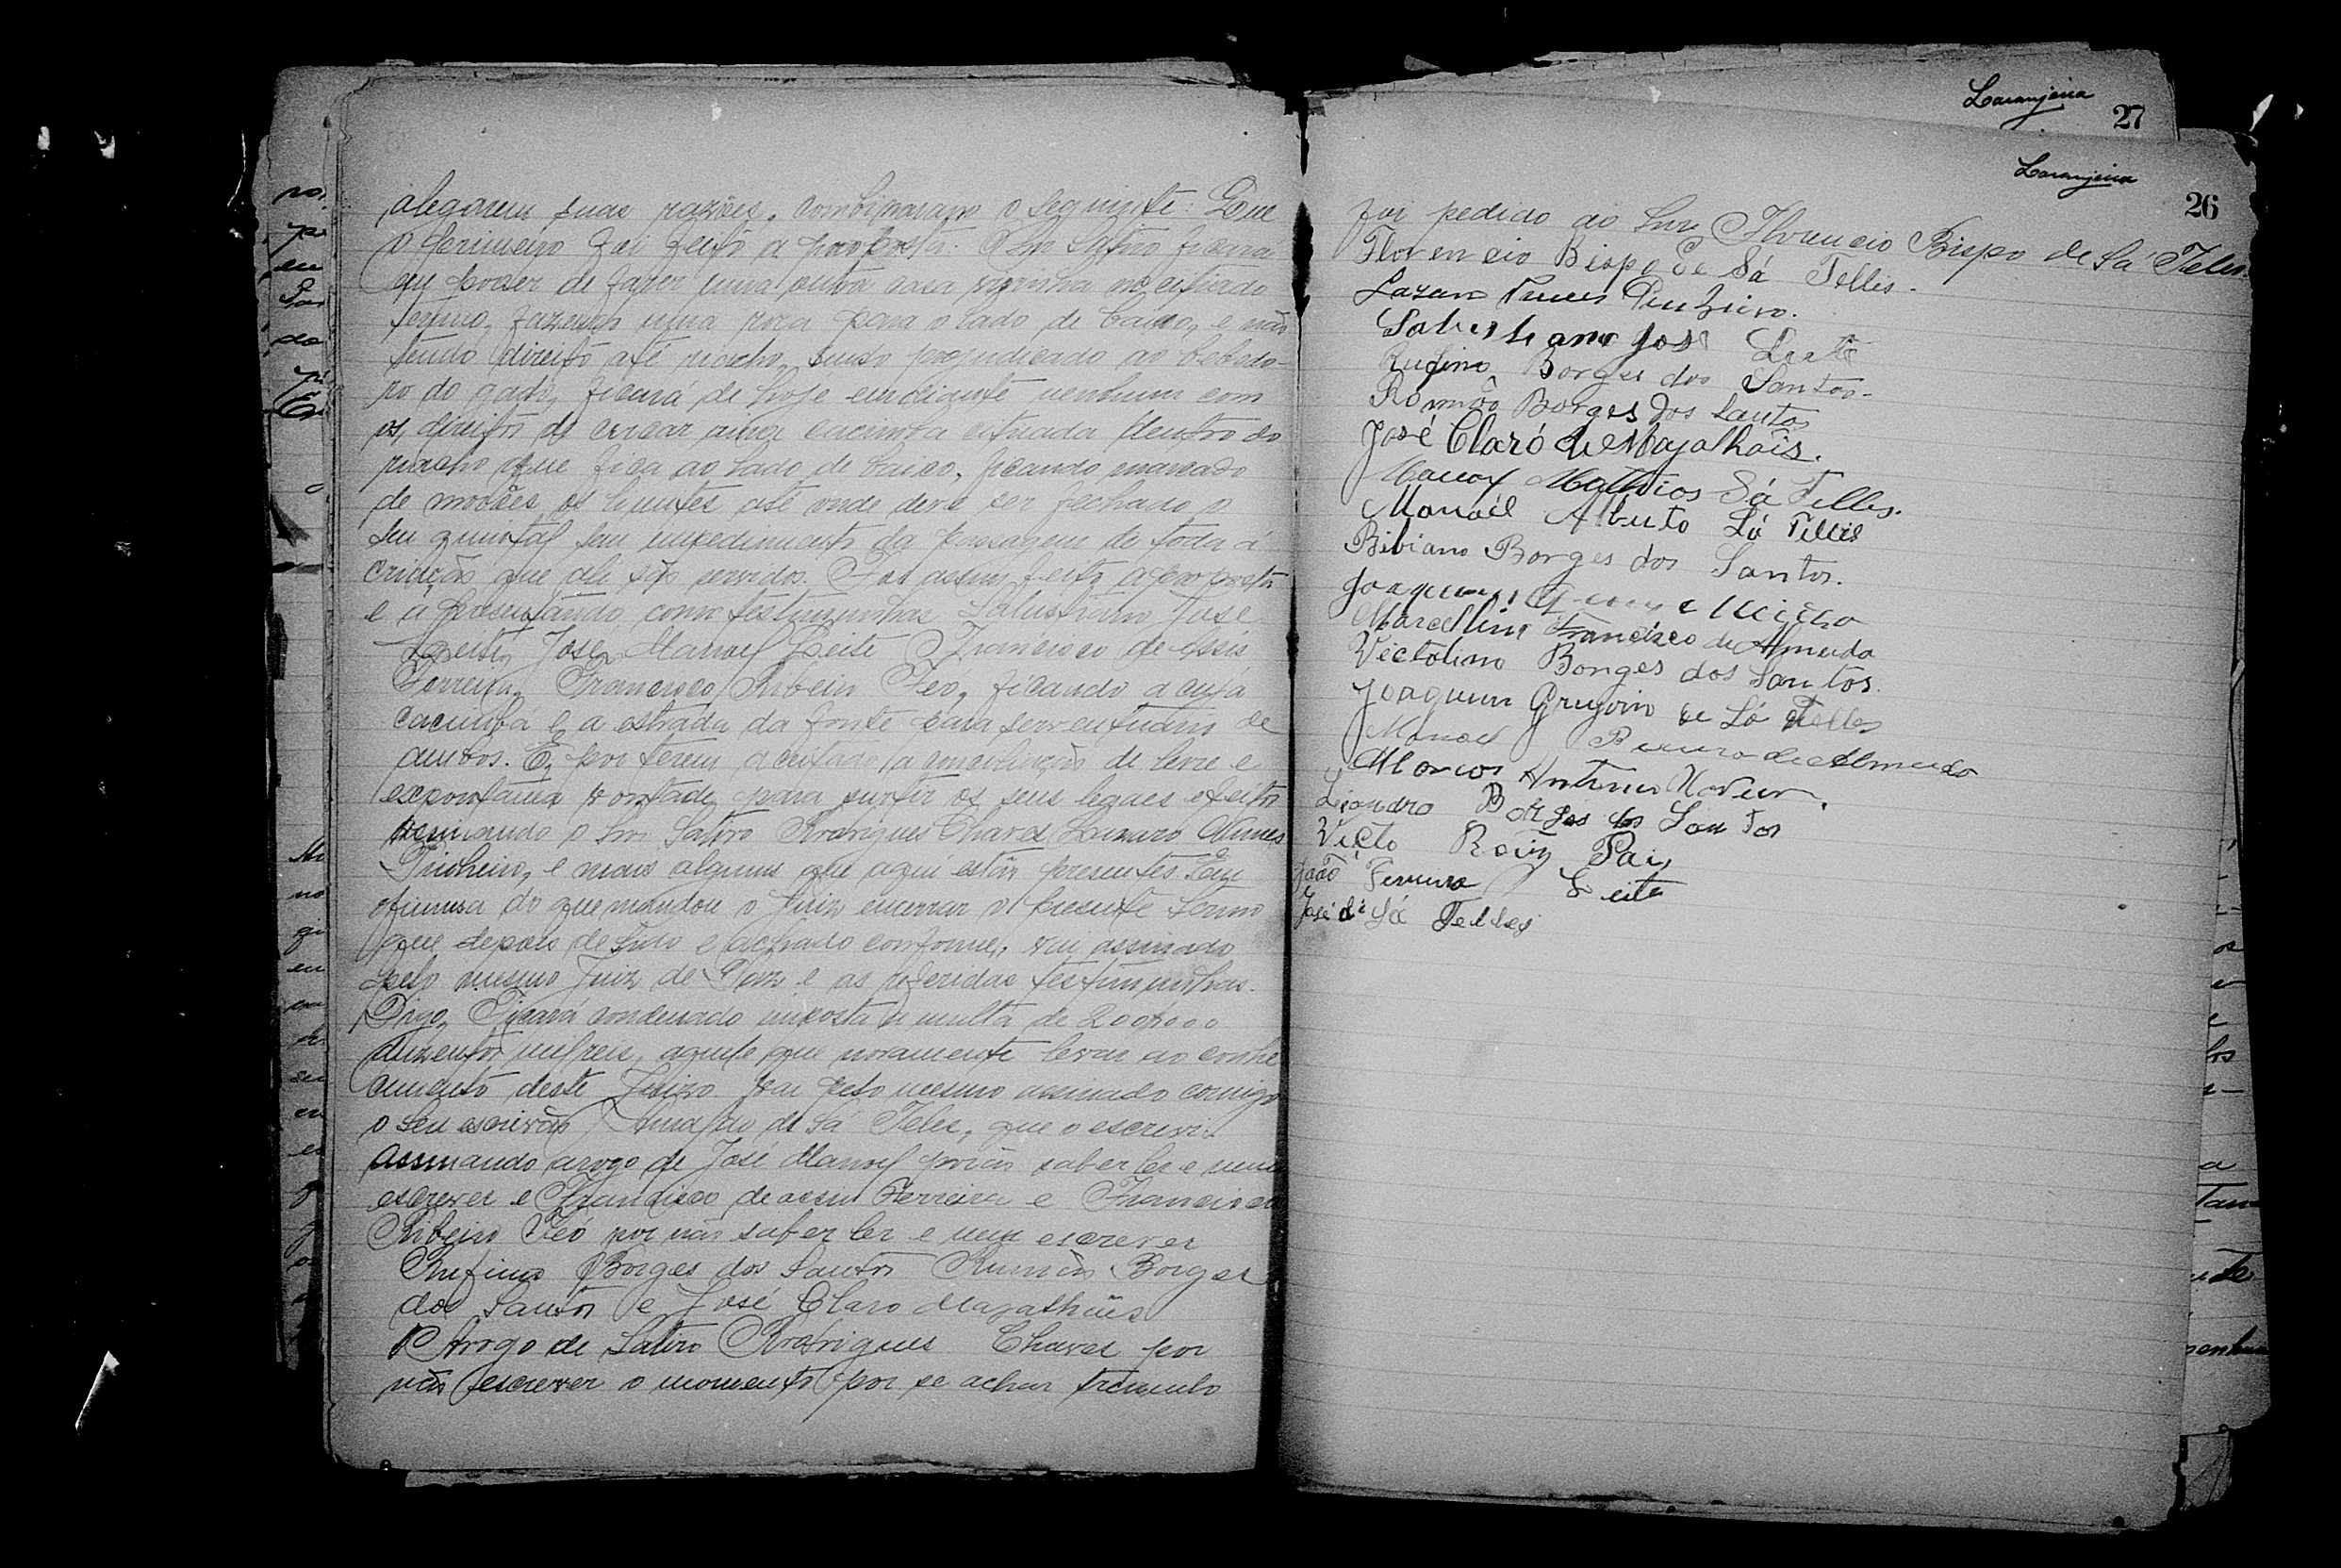 alegarem suas razões, combinaram o seguinte: Que
o primeiro foi feito a proposta. O Snr Satiro ficará
em poder de fazer uma outra casa visinha no citiado
termo, fazendo uma roça para o lado de baixo, e não
tendo direito até riacho, sendo prejudicado ao bebedo-
ro do gado, ficará de hoje endiante nenhum com
os direitos de cercar uma cacimba cituada dentro do
riacho que fica ao lado de baixo, ficando marcado
de mocões os limites até onde deve ser fechado o
seu quintal sem impedimento da passagem de toda a
criação que ali são servidos. Foi assim feita a proposta
e apresentando como testimunhas Salustiano José
Leite, José Manoel Leite Francisco de Assis
Ferreira, Francisco Ribeiro Feó, ficando a cuja
cacimba e a estrada da fonte para serventuario de
ambos. E, por terem aceitado a conciliação de livre e
expontania vontade, para surtir os seus legaes efeitos
assinando o Snr Satiro Rodrigues Chaves Lazaro Nunes
Pinheiro, e mais alguns que aqui estão presentes. Em
firmesa do que mandou o Juiz encerrar o presente termo
que depois de lido e achado conforme, vai assinado
pelo mesmo Juiz de Paz e as referidas testimunhas.
Digo, Ficará condenado imposta a multa de 200$000
duzentos milreis, aquele que novamente levar ao conhe
cimento deste Juizo. Vai pelo mesmo assinado comigo
o seu escrivão de Sá Teles, que o escrevi.
Assinando arogo de José Manoel por não saber ler e nem
escrever e Francisco de assis Ferreira e Francisco
Ribeiro Feó por não saber ler e nem escrever
Rufino Borges dos Santos Rumão Borges
dos Santos e José Claro Magalhães
Arrogo de Satiro Rodrigues Chaves por
não escrever o momento por se achar tremulo
Laranjeira
27
Laranjeira
26
foi pedido ao Snr Florencio Bispo de Sá Teles
Florencio Bispo de Sá Tellis.
Lazaro Nunes Pinheiro.
Salustiano José Leite
Rufino Borges dos Santos.
Romão Borges dos Santos
José Claró de Magalhãis.
Manoel Mathios Sá Telles.
Manoél Alberto Sá Tellis
Bibiano Borges dos Santos.
Joaquim
Marcellino Francisco de Almeida
Victolino Borges dos Santos.
Joaquim Gregorio de Sá Telles
Manoel de Almeida
Marcos Antonio
Liandro Borges dos Santos
Victo Roiz Pais
João Ferreira Leite
José de Sá Telles